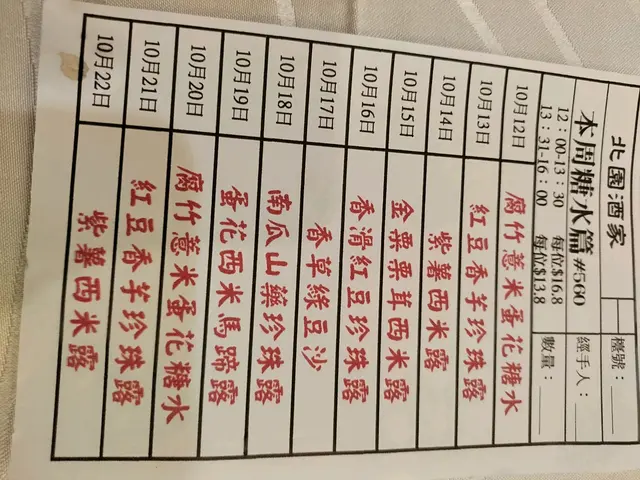 北園酒家
檯號：
本周糖水篇#560
經手人：
12：00-13：30 每位$16.8
13：31-16：00 每位$13.8
數量：
10月12日 腐竹薏米蛋花糖水
10月13日 紅豆香芋珍珠露
10月14日 紫薯西米露
10月15日 金粟粟茸西米露
10月16日 香滑紅豆珍珠露
10月17日 香草綠豆沙
10月18日 南瓜山藥珍珠露
10月19日 蛋花西米馬蹄露
10月20日 腐竹薏米蛋花糖水
10月21日 紅豆香芋珍珠露
10月22日 紫薯西米露